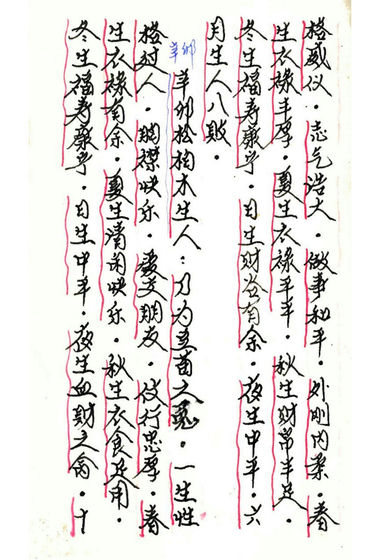 格威仪。志气浩大。做事和平。外刚内柔。春
生衣禄丰厚。夏生衣禄平平。秋生财帛丰足。
冬生福寿康宁。日生财谷有余。夜生中平。六
月生人八败。
辛卯
辛卯松柏木生人：乃为之兔。一生性
格过人。胸襟快乐。爱交朋友。仗行忠厚。春
生衣禄有余。夏生清闲快乐。秋生衣食足用。
冬生福寿康宁。日生中平。夜生血财之禽。十